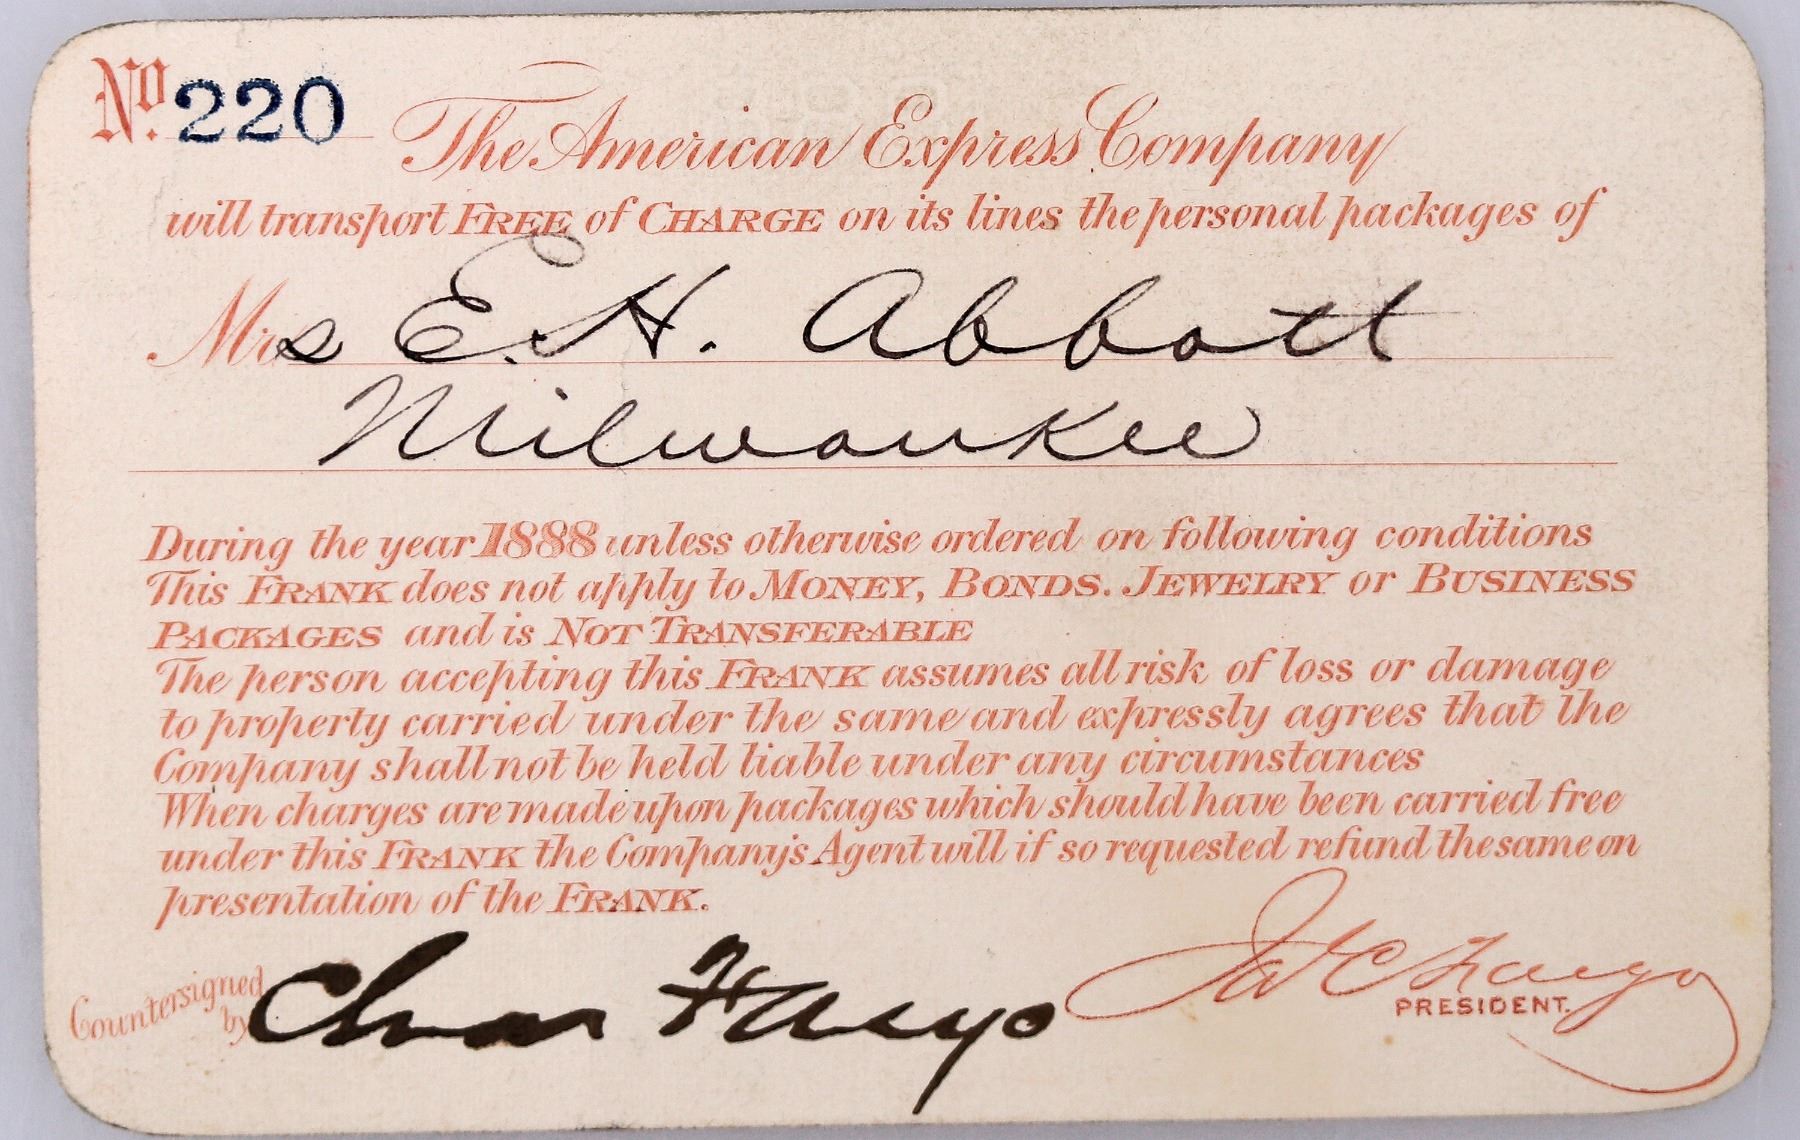 No. 220
The American Express Company
will transport FREE of CHARGE on its lines the personal packages of
Mrs E. H. Abbott
Milwaukee
During the year 1888 unless otherwise ordered on following conditions
This FRANK does not apply to MONEY, BONDS. JEWELRY or BUSINESS
PACKAGES and is NOT TRANSFERABLE
The person accepting this FRANK assumes all risk of loss or damage
to property carried under the same and expressly agrees that the
Company shall not be held liable under any circumstances
When charges are made upon packages which should have been carried free
under this FRANK the Company's Agent will if so requested refund the same on
presentation of the FRANK.
Countersigned by Chas Fargo
Jas C Fargo
PRESIDENT.